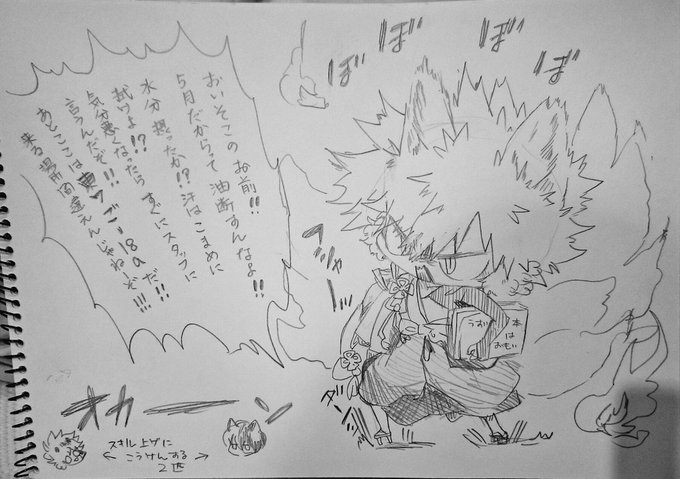 ぼ ぼ ぼ ぼ
おいそこのお前!!
5月だからって油断すんなよ!!
水分摂ったか!?汗はこまめに
拭けよ!?
気分悪くなったらすぐにスタッフに
言うんだぞ!!
あとここは東ソご-18aだ!!
来る場所間違えんじゃねぇぞ!!!
うす
本は
おもい
オカーーン
スキル上げに
こうけんする
2匹